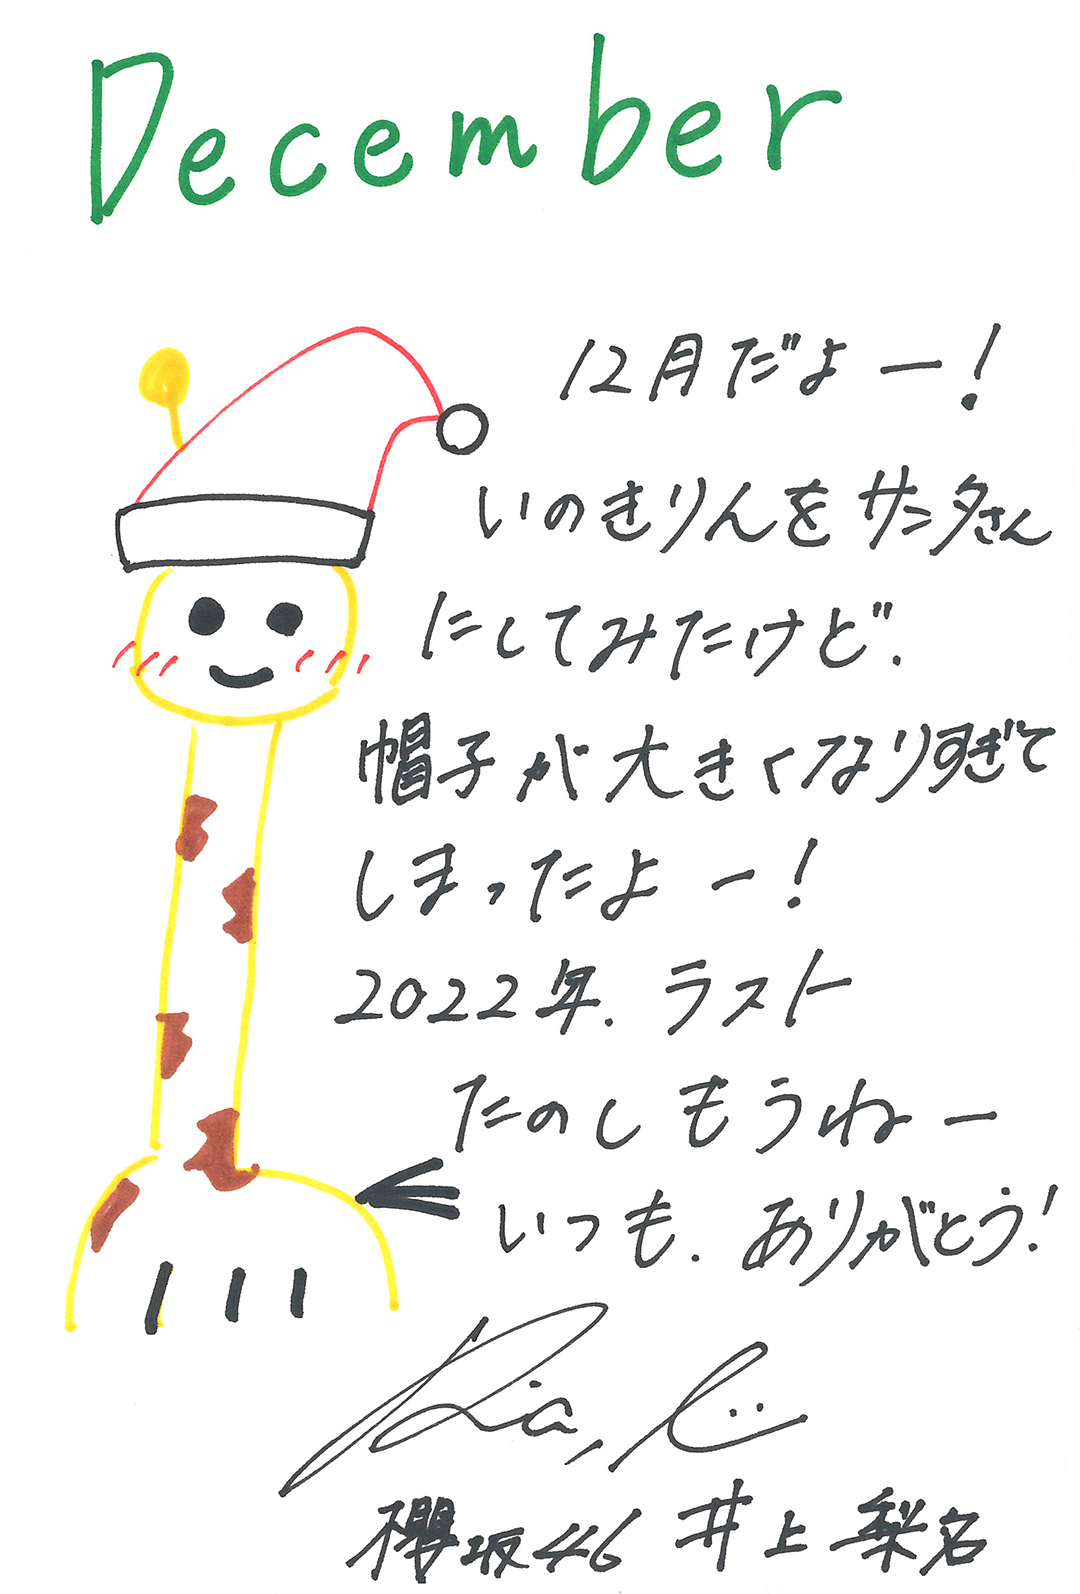 December
12月だよー!
いのきりんをサンタさん
にしてみたけど.
帽子が大きくなりすぎて
しまったよー!
2022年.ラスト
たのしもうねー
いつも.ありがとう!
櫻坂46 井上梨名